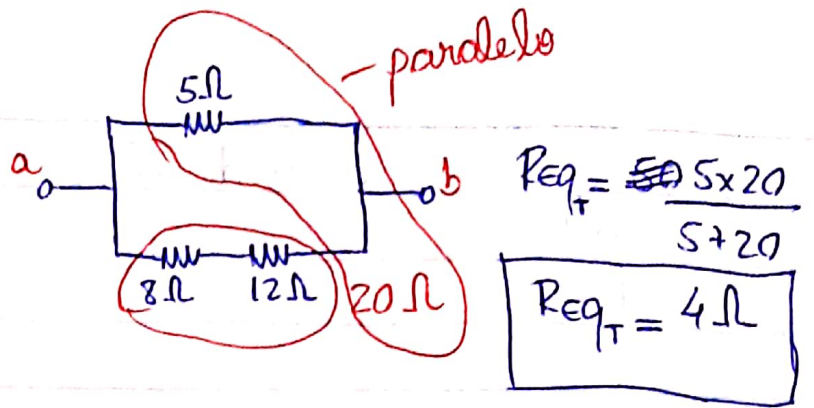 paralelo
5Ω
a
b
8Ω 12Ω 20Ω
REq_T = 5x20
5+20
REq_T = 4Ω